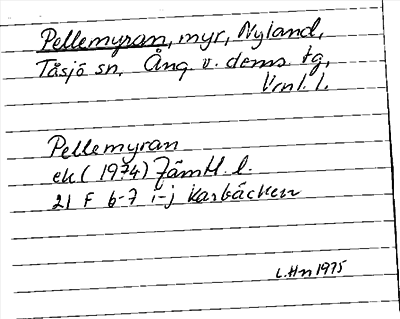 Pellemyran, myr, Nyland,
Tåsjö sn, Ång v. doms. tg,
Vrnl. l.
Pellemyran
ek (1974) Jämtl. l.
21 F 6-7 i-j Karbäcken
L.Hn 1975